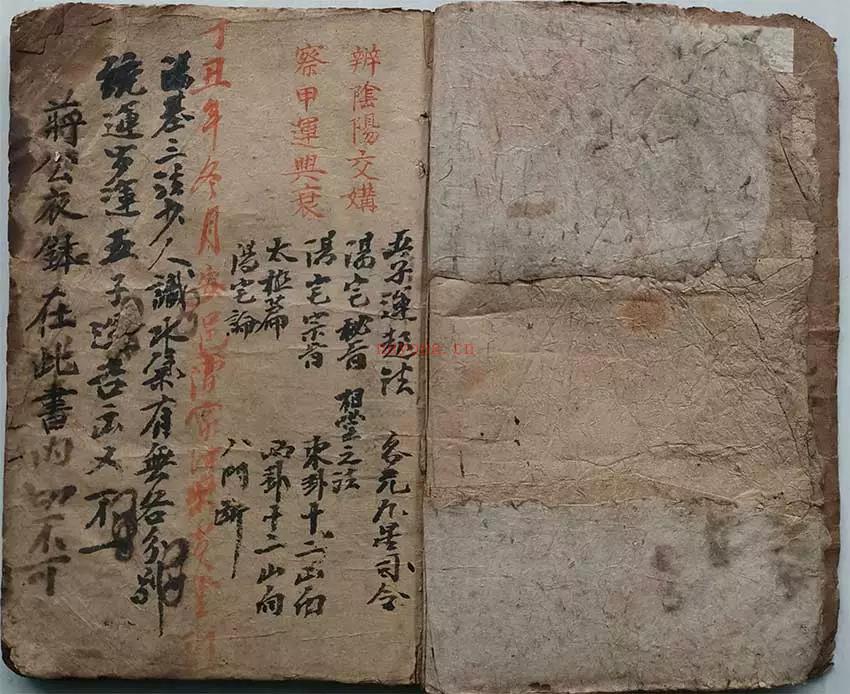 辨陰陽交媾
察甲運興衰
五子運起法 各元九星司令
陽宅秘旨 墾之法
陽宅宗旨 東卦十二山向
太極篇 西卦十二山向
陽宅論 八門断
丁丑年冬月
陽基之法少人識水氣有無各分
統運步運五子 吉凶又
蔣公衣鉢在此書内切不可